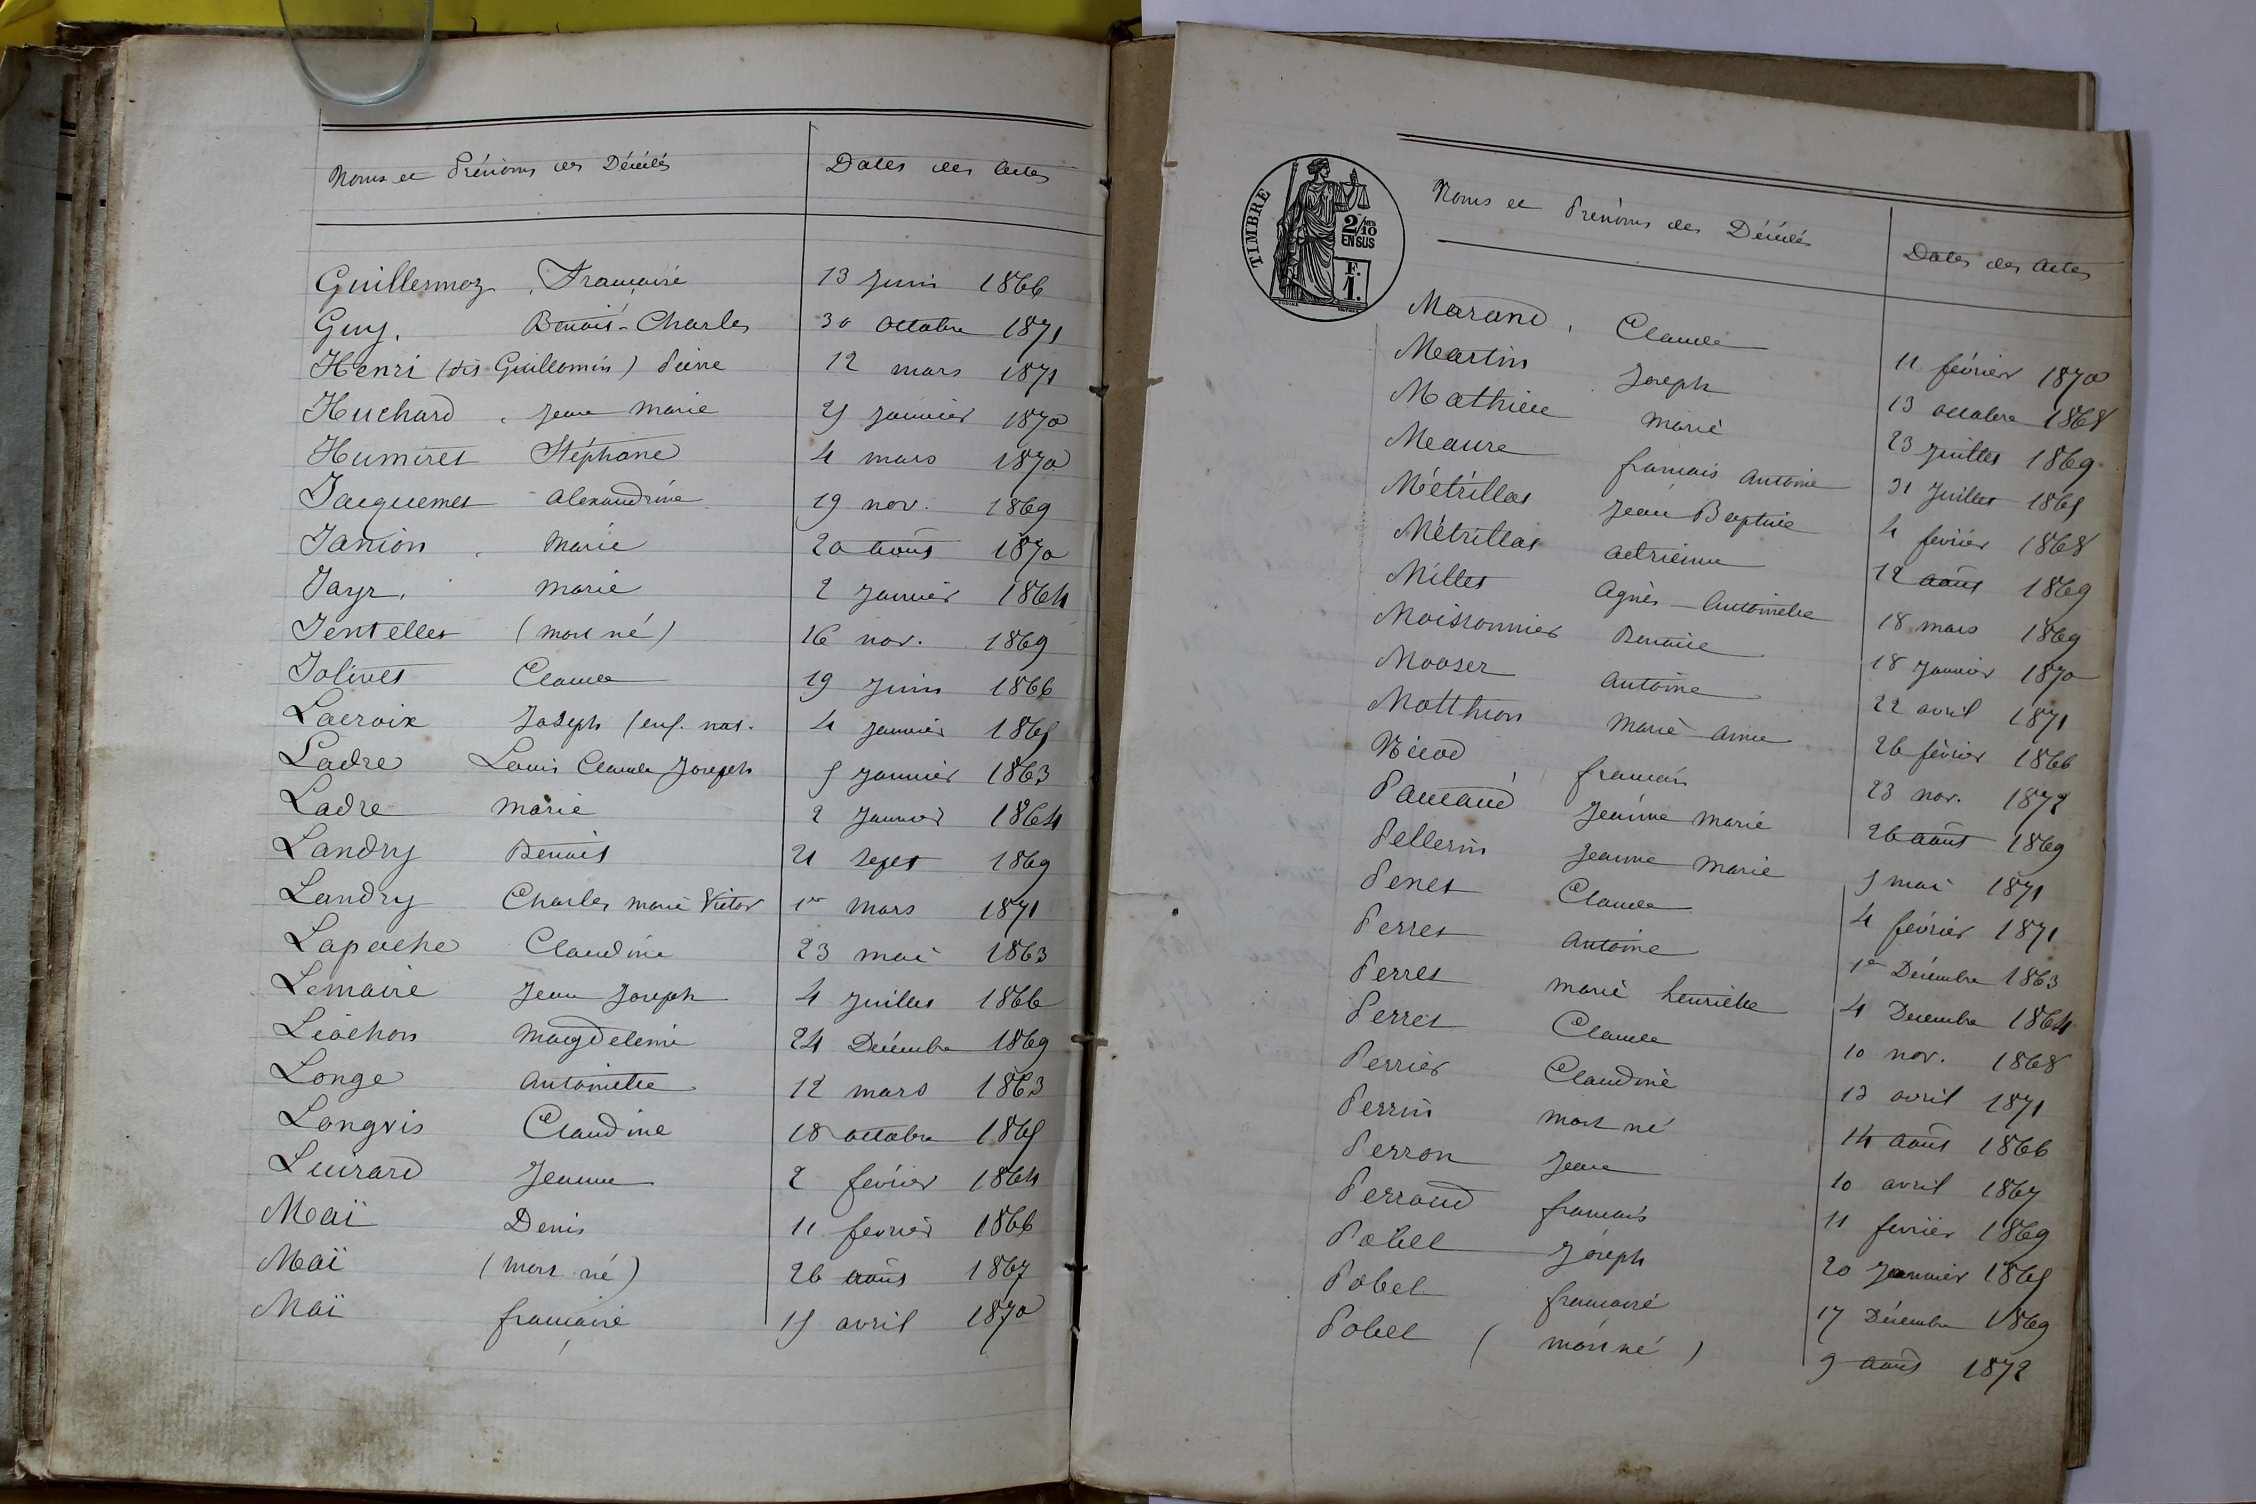 Noms et Prénoms des Décédés Dates des Actes
Guillermoz, Françoise 13 Juin 1866
Guy, Benoit-Charles 30 octobre 1871
Henri (dit Guillomin) Pierre 12 mars 1871
Huchard, Jean Marie 25 Janvier 1870
Humiret Stéphane 4 mars 1870
Jacquemet Alexandrine 19 nov. 1869
Janion, Marie 20 août 1870
Jayr, Marie 2 Janvier 1864
Jentelles (mort né) 16 nov. 1869
Jolivet Claude 19 Juin 1866
Lacroix Joseph (enf. nat. 4 Janvier 1865
Ladre Louis Claude Joseph 5 Janvier 1863
Ladre Marie 2 Janvier 1864
Landry Benoit 21 sept 1869
Landry Charles Marie Victor 1er Mars 1871
Lapoche Claudine 23 mai 1863
Lemaire Jean Joseph 4 Juillet 1866
Liochon Magdeleine 24 Décembre 1869
Longe Antoinette 12 mars 1863
Longris Claudine 18 octobre 1865
Luirard Jeanne 2 février 1864
Maï Denis 11 février 1866
Maï (Mort né) 26 août 1867
Maï françoise 15 avril 1870
TIMBRE
2/10 EN SUS
F.
1.
Noms et Prénoms des Décédés Dates des Actes
Marand, Claude 11 février 1870
Martin Joseph 13 octobre 1868
Mathieu Marie 23 Juillet 1869
Meaure françois Antoine 31 Juillet 1865
Métrillot Jean Baptiste 4 février 1868
Métrillot adrienne 12 août 1869
Millet Agnès - Antoinette 18 mars 1869
Moissonnier Benoite 18 Janvier 1870
Mooser Antoine 22 avril 1871
Motthion Marie Anne 26 février 1866
Nicod, françois 23 nov. 1872
Paucaud Jeanne Marie 26 août 1869
Pellerin Jeanne Marie 5 mai 1871
Penet Claude 4 février 1871
Perret Antoine 1er Décembre 1863
Perret Marie henriette 4 Decembre 1864
Perret Claude 10 nov. 1868
Perrier Claudine 13 avril 1871
Perrin Mort né 14 août 1866
Perron Jean 10 avril 1867
Perroud françois 11 fevrier 1869
Pobel Joseph 20 Janvier 1865
Pobel françoise 17 Décembre 1869
Pobel (mort né) 9 août 1872